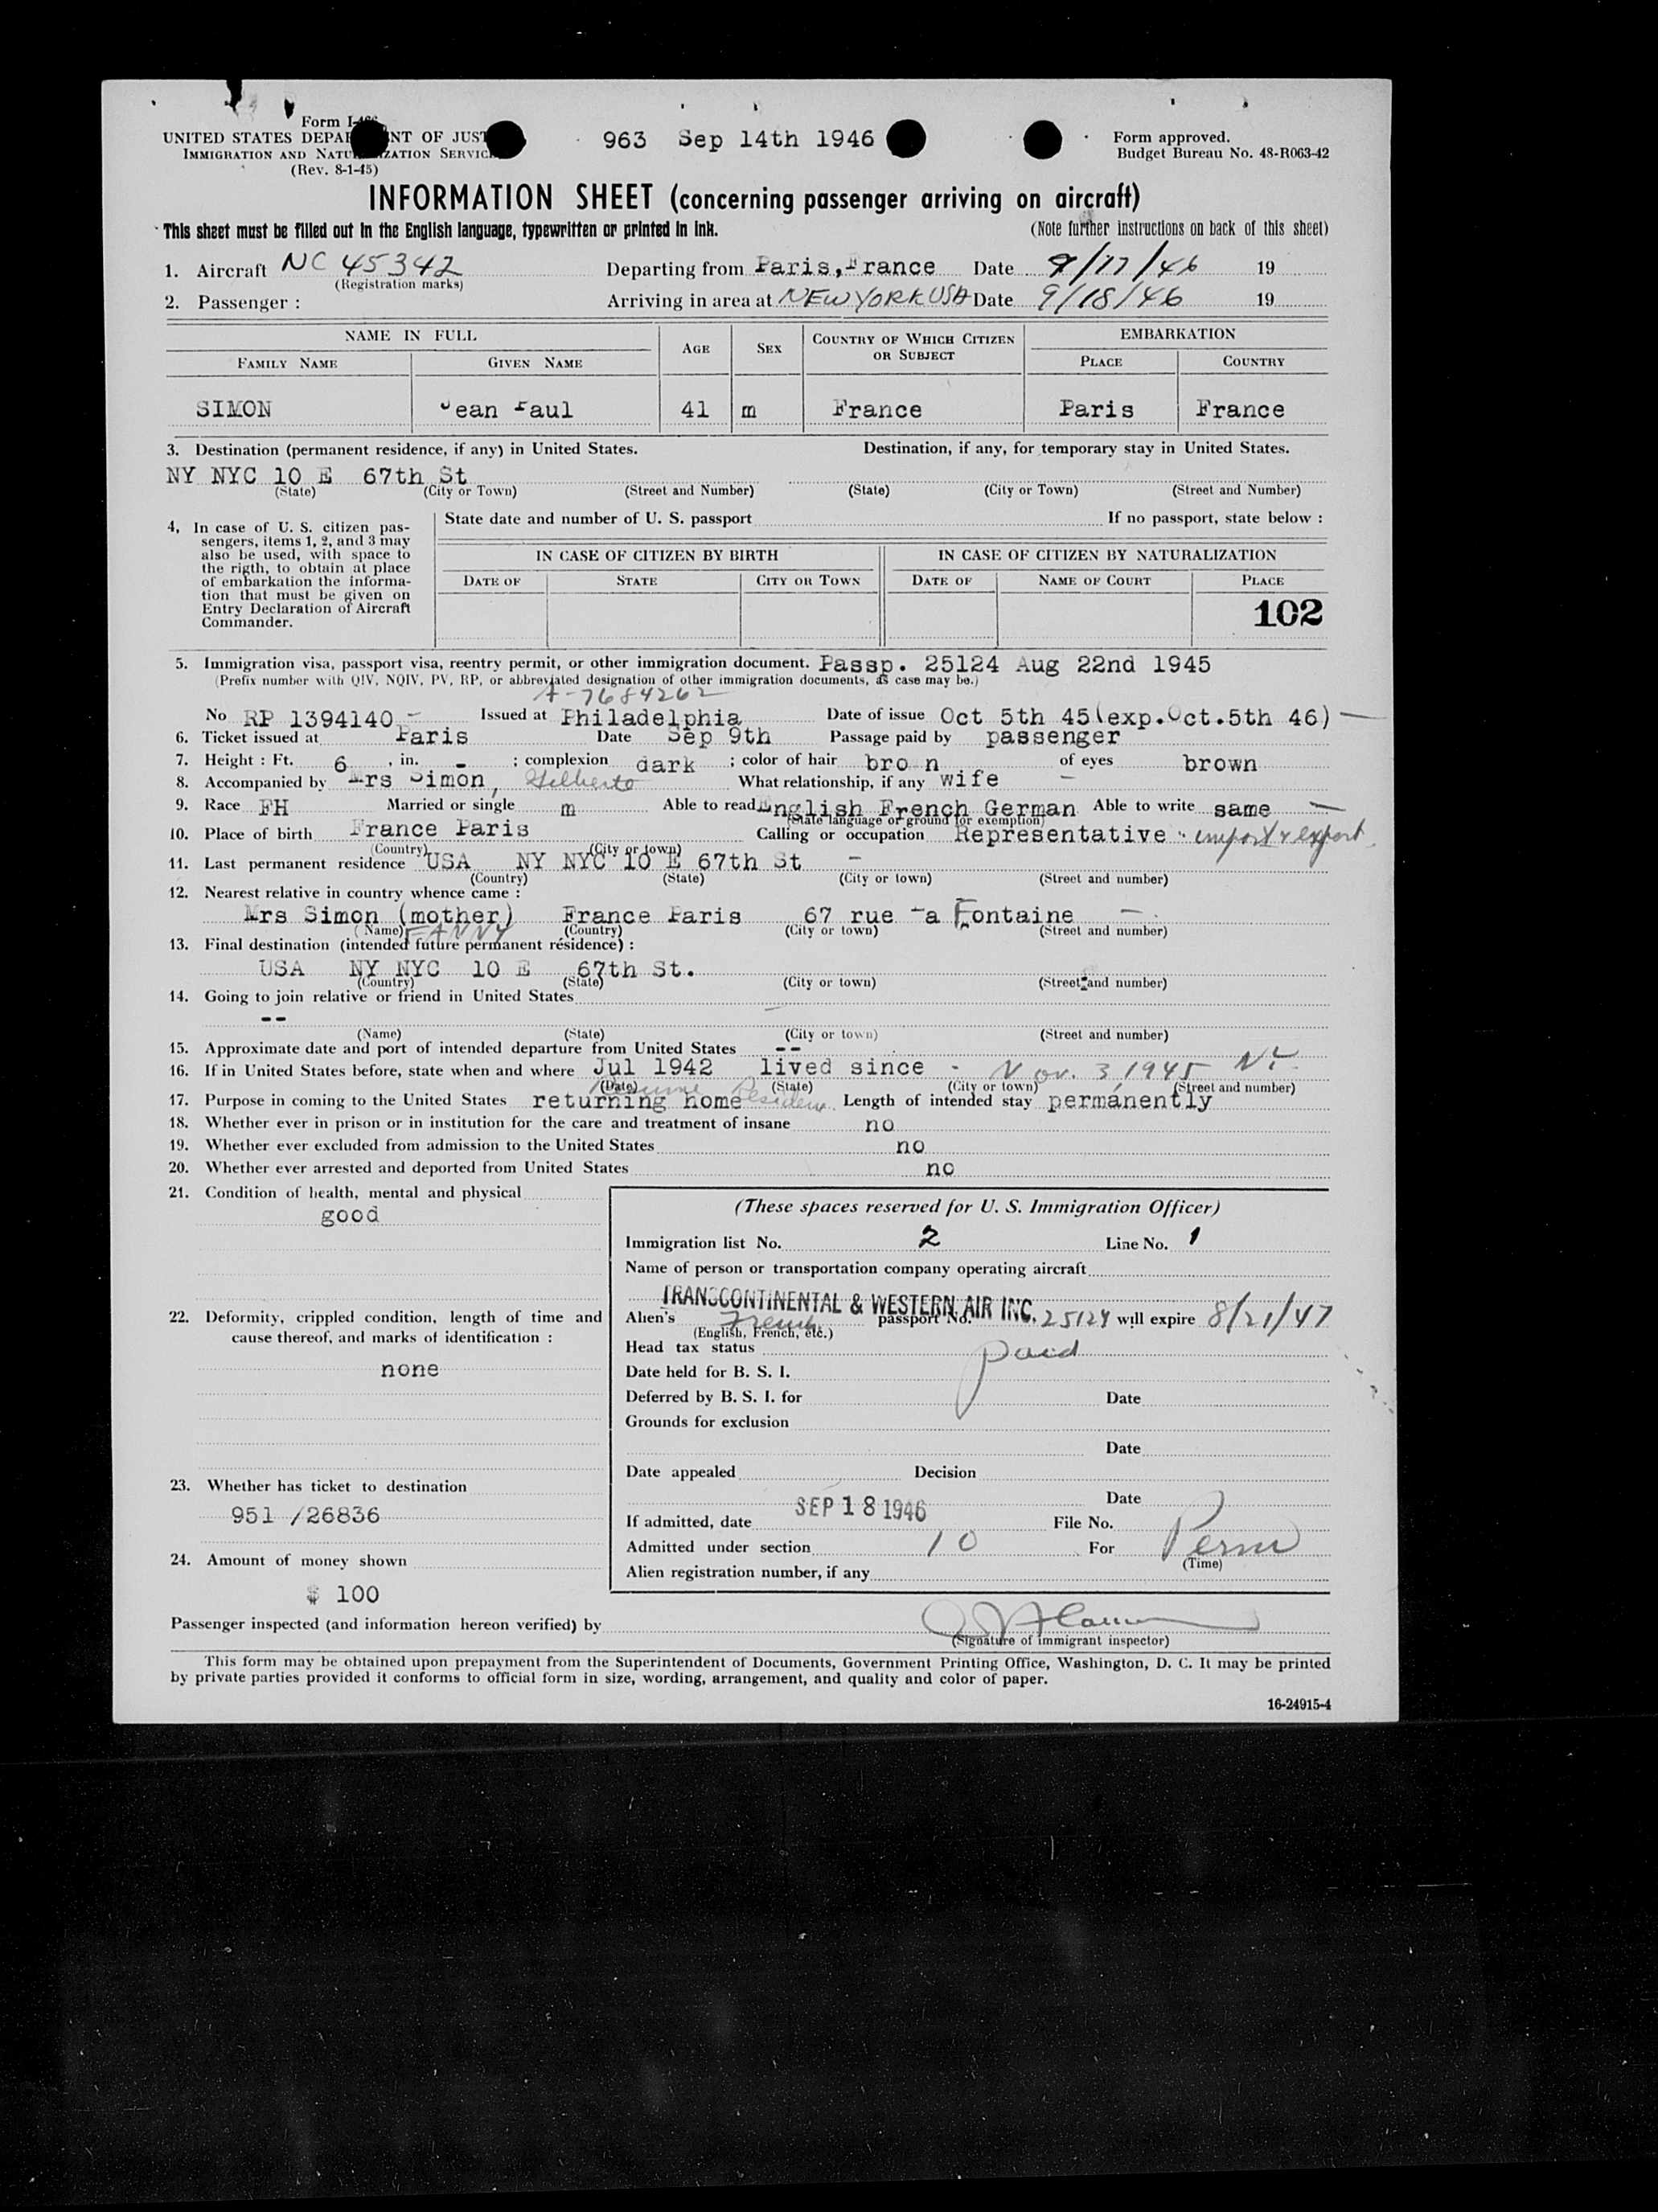 Form I-466
UNITED STATES DEPARTMENT OF JUSTICE
IMMIGRATION AND NATURALIZATION SERVICE
(Rev. 8-1-45)
963 Sep 14th 1946
Form approved.
Budget Bureau No. 43-R063-42
INFORMATION SHEET (concerning passenger arriving on aircraft)
This sheet must be filled out in the English language, typewritten or printed in ink. (Note further instructions on back of this sheet)
1. Aircraft NC 45342 Departing from Paris, France Date 9/17/46 19
(Registration marks)
2. Passenger : Arriving in area at NEW YORK USA Date 9/18/46 19
NAME IN FULL AGE SEX COUNTRY OF WHICH CITIZEN OR SUBJECT EMBARKATION
FAMILY NAME GIVEN NAME PLACE COUNTRY
SIMON Jean Paul 41 m France Paris France
3. Destination (permanent residence, if any) in United States. Destination, if any, for temporary stay in United States.
NY NYC 10 E 67th St
(State) (City or Town) (Street and Number) (State) (City or Town) (Street and Number)
4, In case of U. S. citizen pas-
sengers, items 1, 2, and 3 may
also be used, with space to
the rigth, to obtain at place
of embarkation the informa-
tion that must be given on
Entry Declaration of Aircraft
Commander.
State date and number of U. S. passport If no passport, state below :
IN CASE OF CITIZEN BY BIRTH IN CASE OF CITIZEN BY NATURALIZATION
DATE OF STATE CITY OR TOWN DATE OF NAME OF COURT PLACE
102
5. Immigration visa, passport visa, reentry permit, or other immigration document. Passp. 25124 Aug 22nd 1945
(Prefix number with QIV, NQIV, PV, RP, or abbreviated designation of other immigration documents, as case may be.)
A-7684262
No RP 1394140 - Issued at Philadelphia Date of issue Oct 5th 45(exp.Oct.5th 46) -
6. Ticket issued at Paris Date Sep 9th Passage paid by passenger
7. Height : Ft. 6 , in. - ; complexion dark ; color of hair bro n of eyes brown
8. Accompanied by Mrs Simon, Gilberte What relationship, if any wife -
9. Race FH Married or single m Able to read English French German Able to write same -
(State language or ground for exemption)
10. Place of birth France Paris Calling or occupation Representative - import & export
(Country) (City or town)
11. Last permanent residence USA NY NYC 10 E 67th St -
(Country) (State) (City or town) (Street and number)
12. Nearest relative in country whence came :
Mrs Simon (mother) France Paris 67 rue La Fontaine -
(Name) FANNY (Country) (City or town) (Street and number)
13. Final destination (intended future permanent résidence) :
USA NY NYC 10 E 67th St.
(Country) (State) (City or town) (Street and number)
14. Going to join relative or friend in United States
--
(Name) (State) (City or town) (Street and number)
15. Approximate date and port of intended departure from United States --
16. If in United States before, state when and where Jul 1942 lived since - Nov. 3, 1945 NY
(Date) (State) (City or town) (Street and number)
Resume Residence
17. Purpose in coming to the United States returning home Length of intended stay permanently
18. Whether ever in prison or in institution for the care and treatment of insane no
19. Whether ever excluded from admission to the United States no
20. Whether ever arrested and deported from United States no
21. Condition of health, mental and physical
good
22. Deformity, crippled condition, length of time and
cause thereof, and marks of identification :
none
23. Whether has ticket to destination
951 /26836
24. Amount of money shown
$ 100
(These spaces reserved for U. S. Immigration Officer)
Immigration list No. 2 Line No. 1
Name of person or transportation company operating aircraft
TRANSCONTINENTAL & WESTERN AIR INC.
Alien's French passport No. 25124 will expire 8/21/47
(English, French, etc.)
Head tax status paid
Date held for B. S. I.
Deferred by B. S. I. for Date
Grounds for exclusion
Date
Date appealed Decision
Date
If admitted, date SEP 18 1946 File No.
Admitted under section 10 For Perm
(Time)
Alien registration number, if any
Passenger inspected (and information hereon verified) by
(Signature of immigrant inspector)
This form may be obtained upon prepayment from the Superintendent of Documents, Government Printing Office, Washington, D. C. It may be printed
by private parties provided it conforms to official form in size, wording, arrangement, and quality and color of paper.
16-24915-4